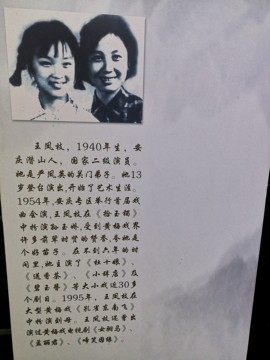 王凤枝，1940年生，安
庆潜山人，国家二级演员。
她是严凤英的关门弟子。她13
岁登台演出，开始了艺术生涯。
1954年，安庆专区举行首届戏
曲会演，王凤枝在《拾玉镯》
中扮演孙玉娇，受到黄梅戏界
许多前辈时贤的赞誉，夸她是
个好苗子。在不到六年的时
间里，她主演了《杜十娘》、
《送香茶》、《小辞店》及
《碧玉簪》等大小戏近30多
个剧目。1995年，王凤枝在
大型黄梅戏《孔雀东南飞》
中扮演刘母。王凤枝还曾出
演过黄梅戏电视剧《女驸马》、
《孟丽君》、《啼笑因缘》。